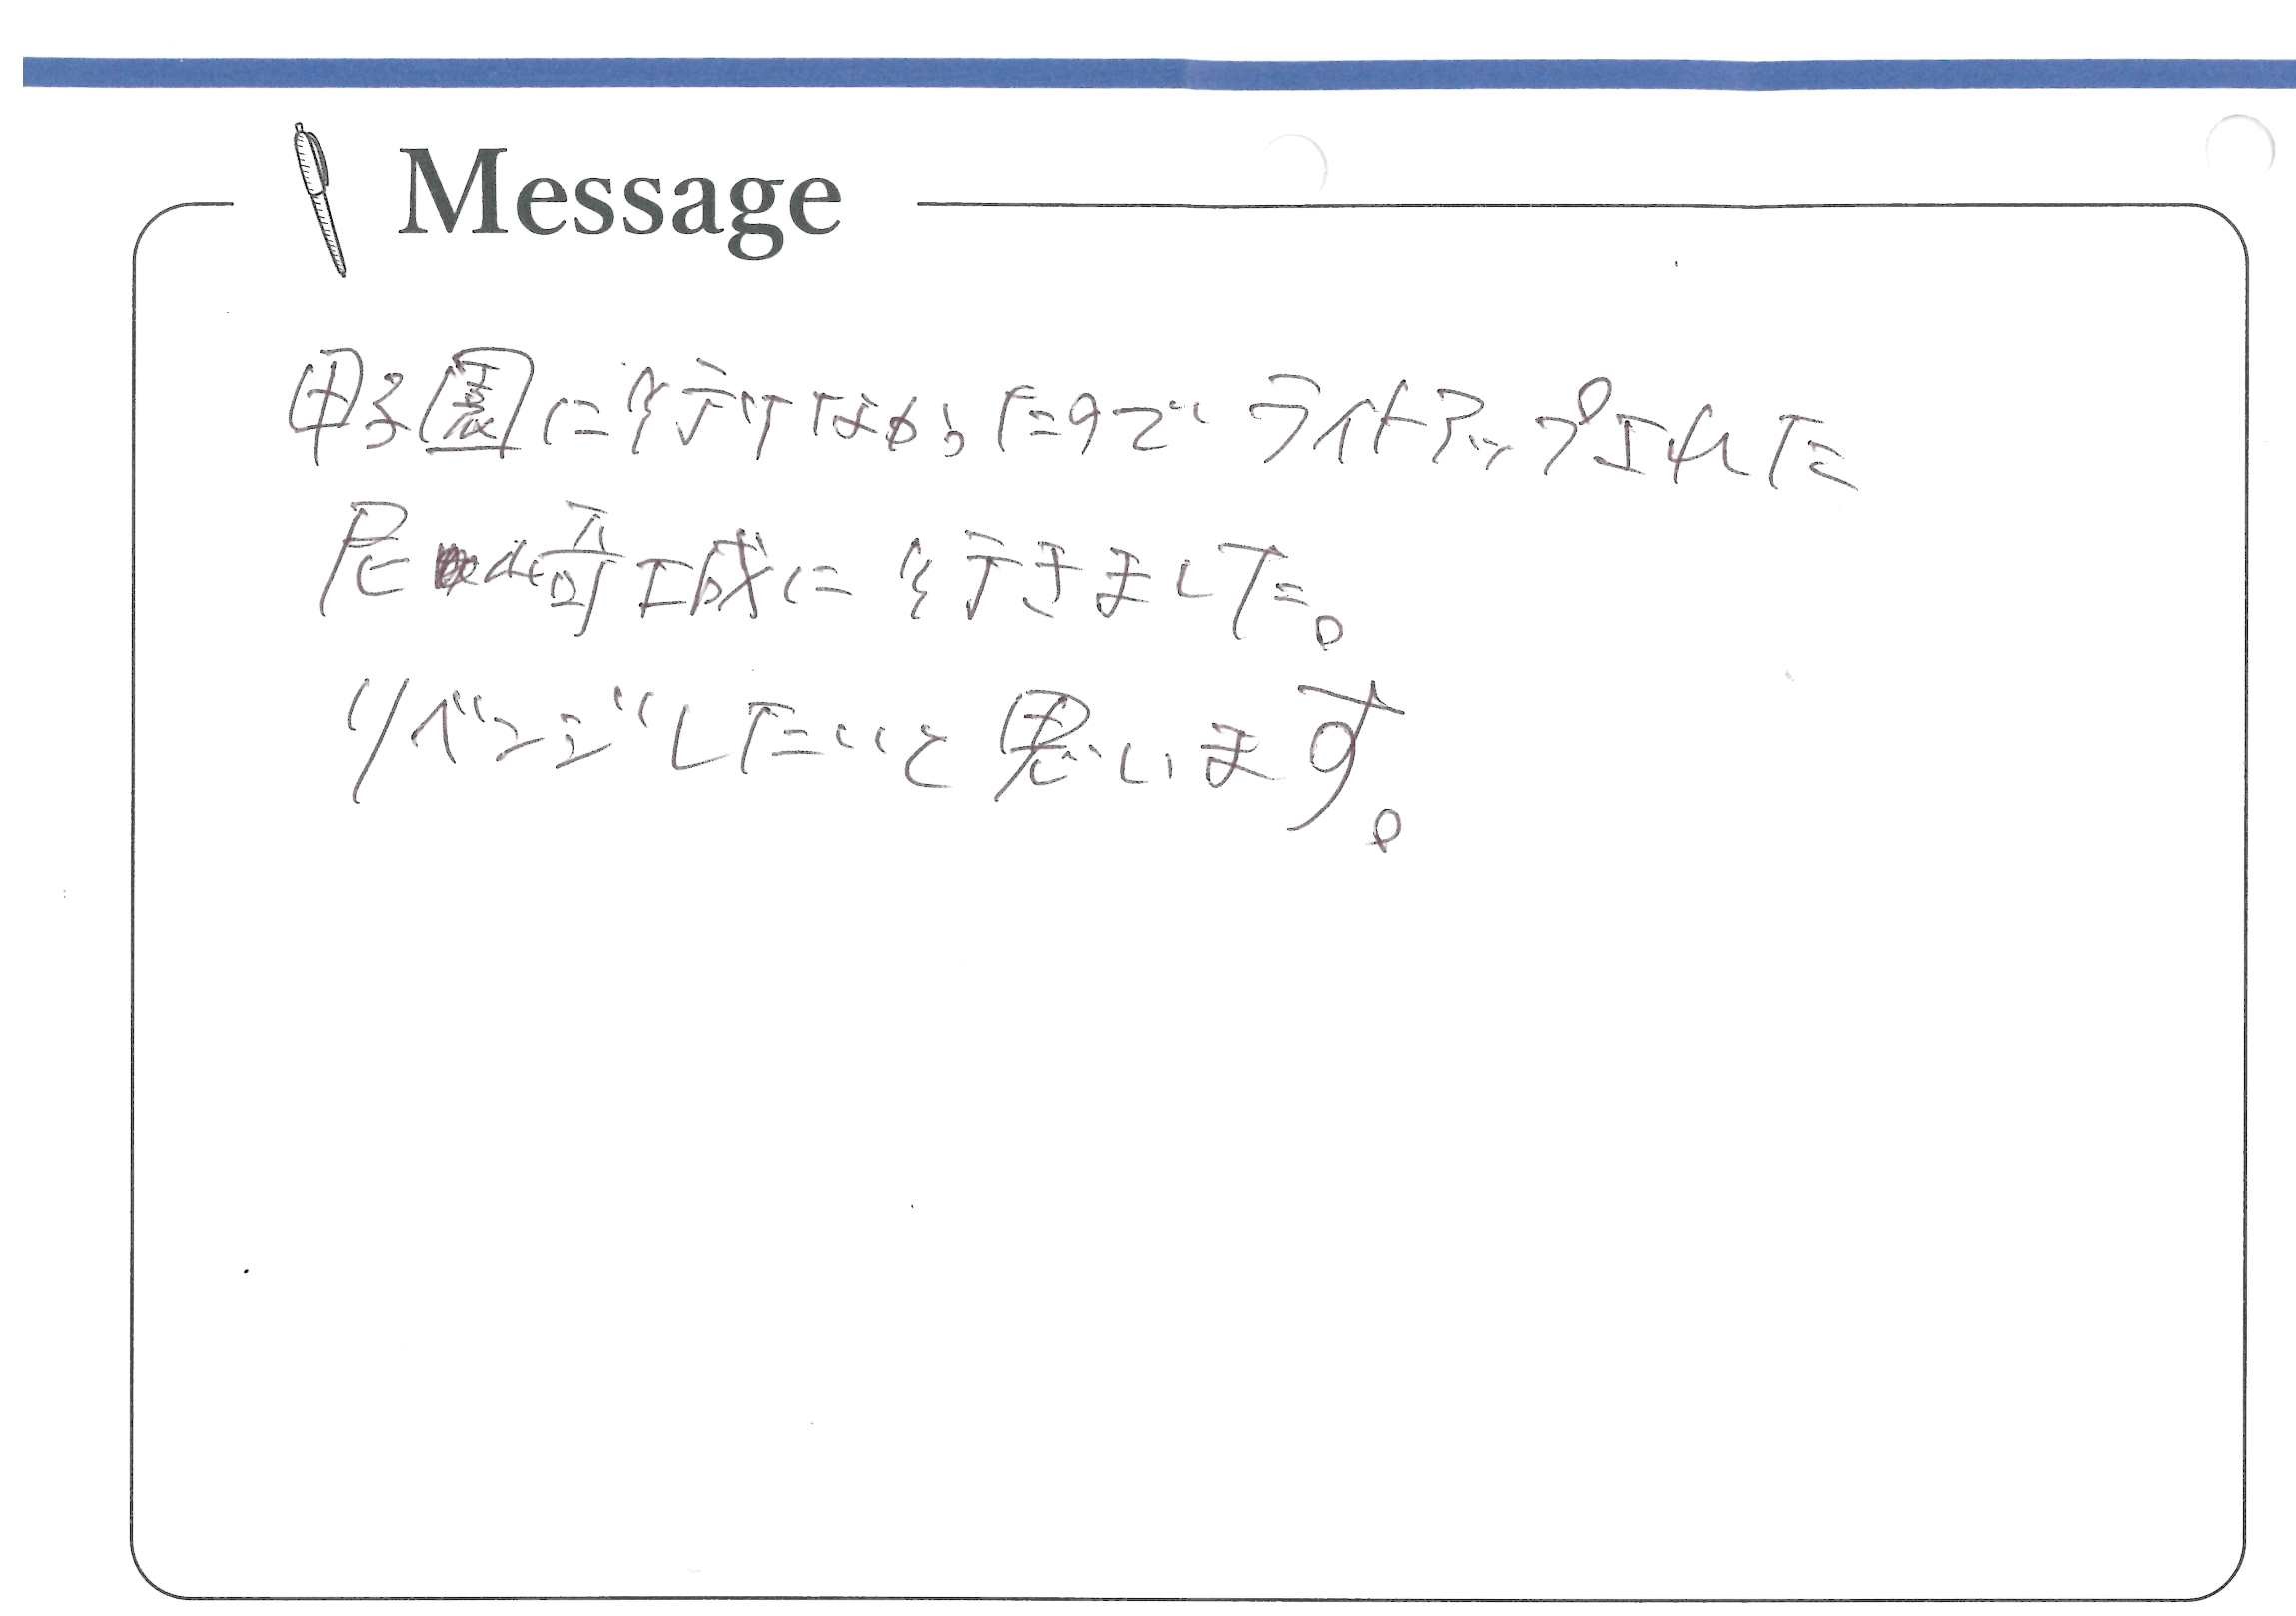 Message
甲子園に行けなからたのでライトアップされた
尼崎城に行きました。
リベンジしたいと思います。